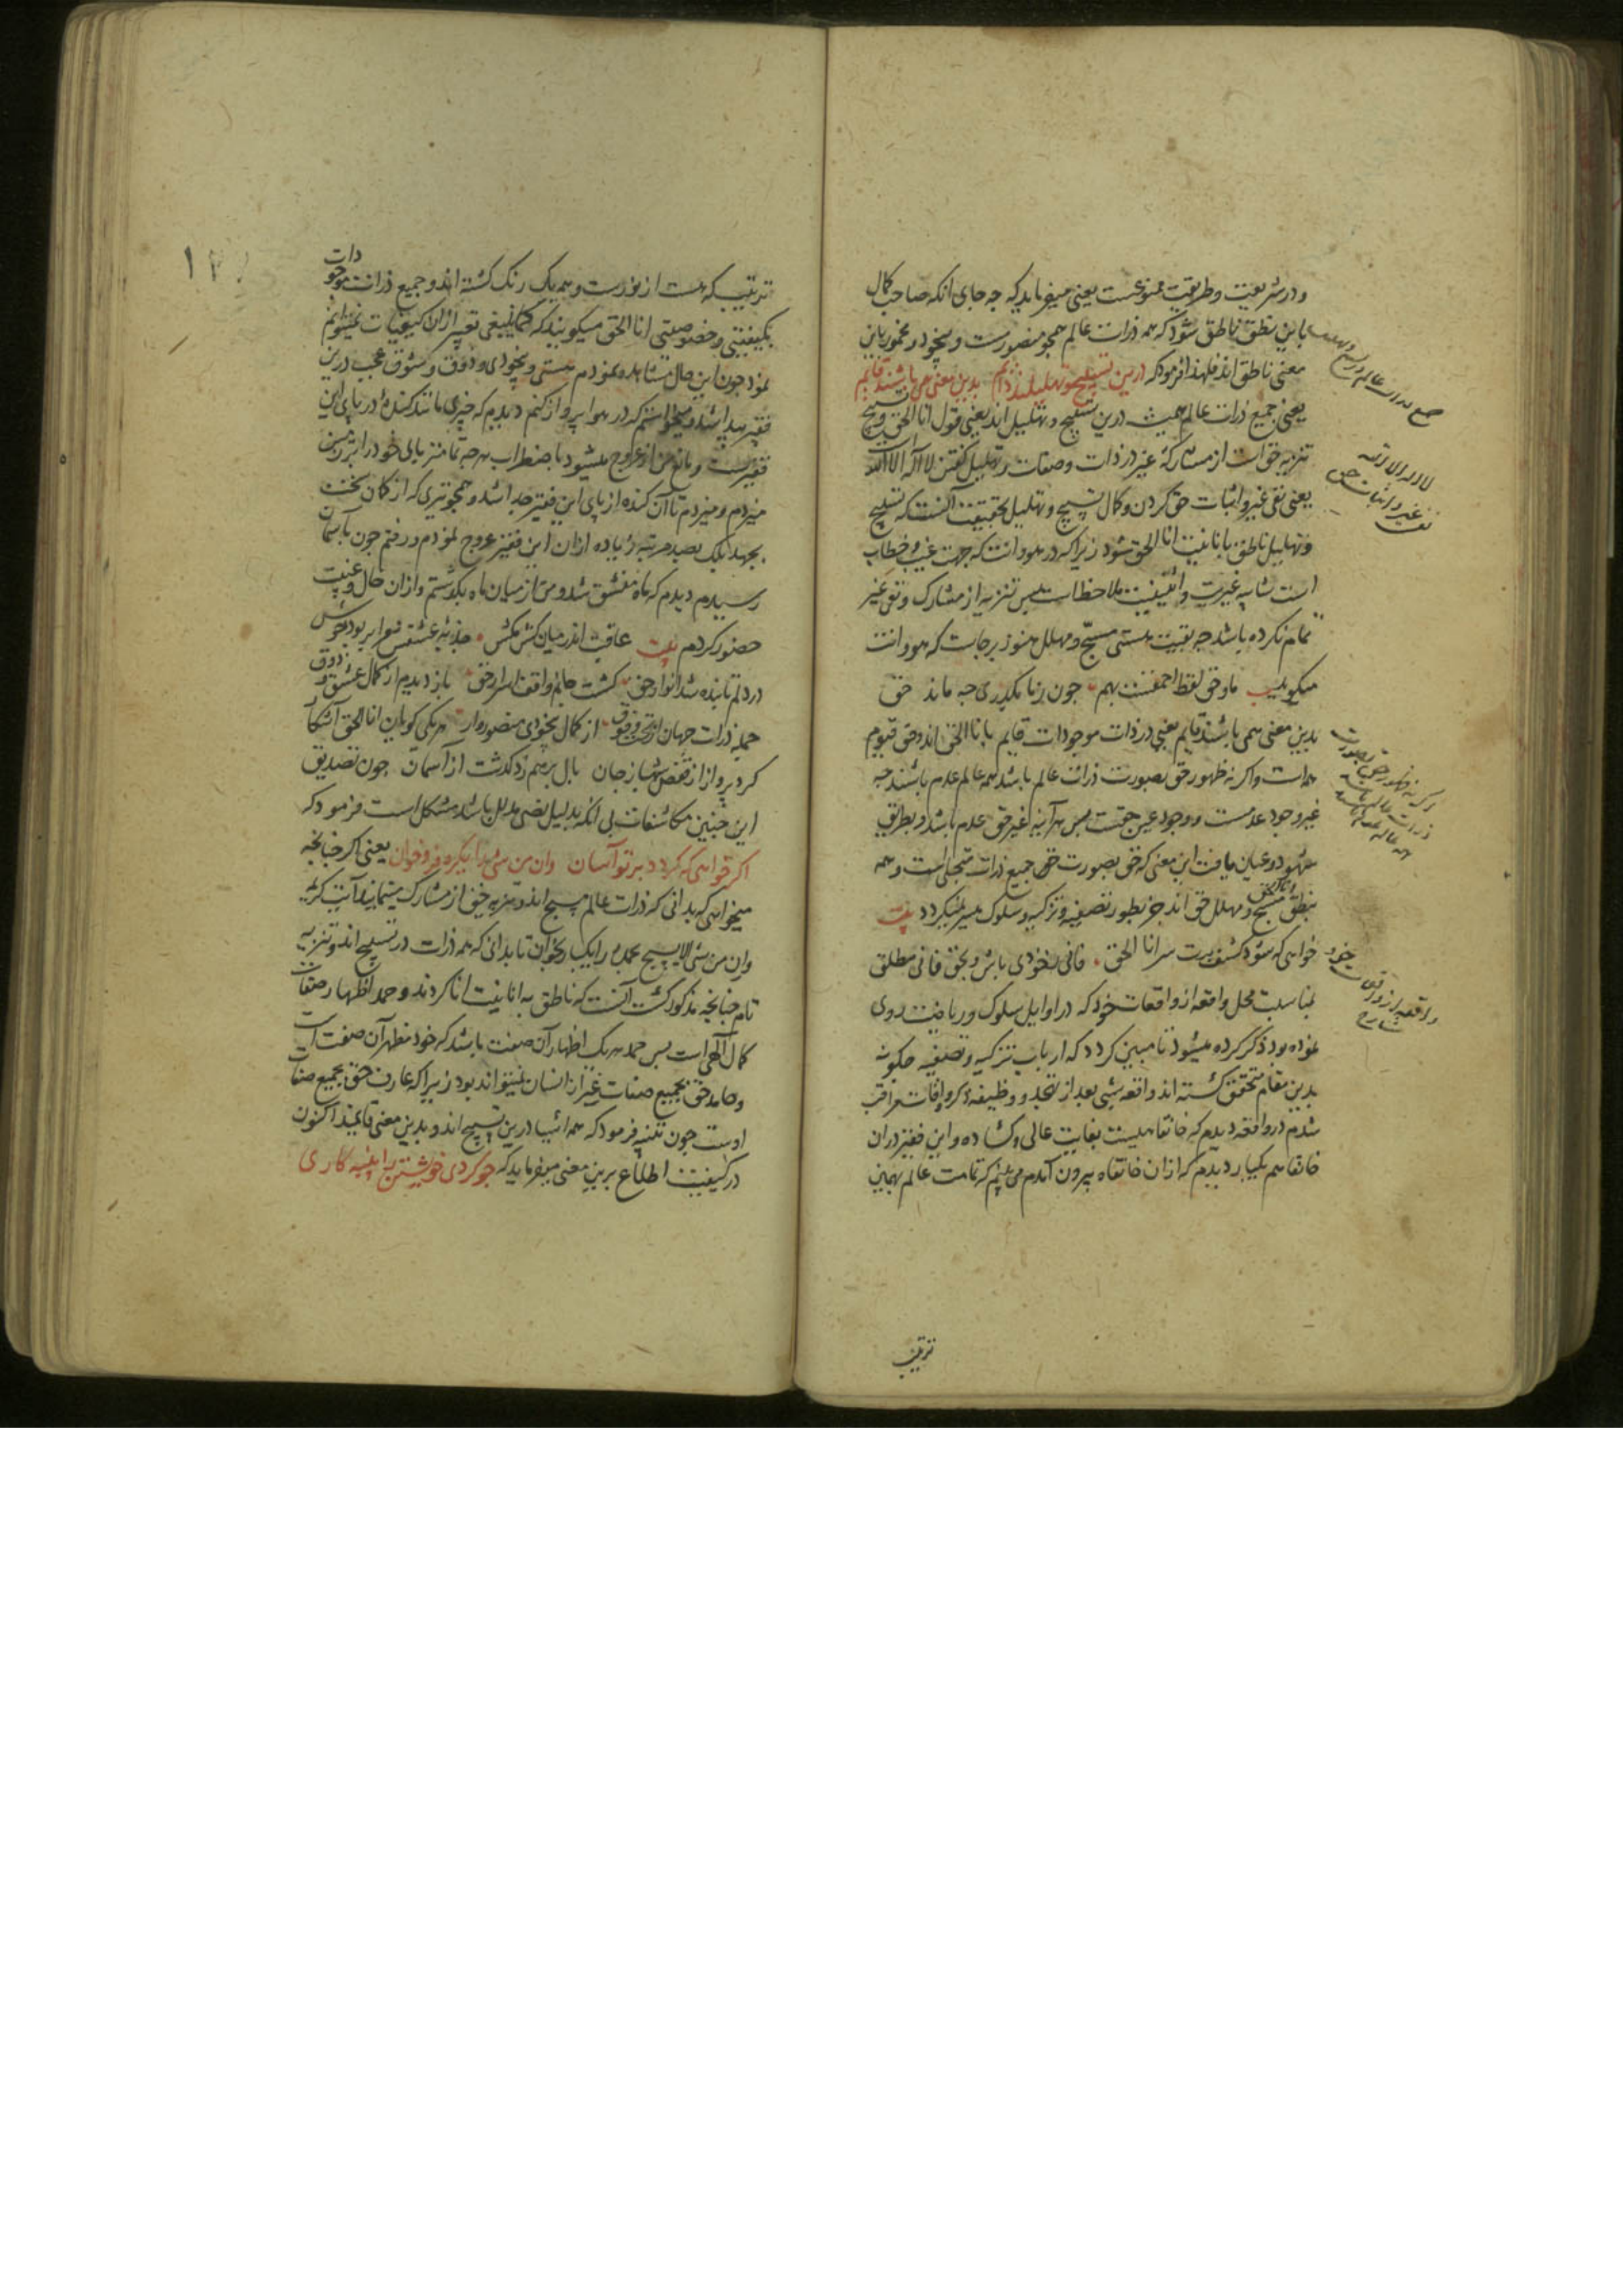 و در شریعت و طریقت ممنوعست یعنی میفرماید که چه جای آنکه صاحب کمال
باین نطق ناطق شود که همه ذرات عالم همچو منصورست و بیخود و مخمور باین
معنی ناطق اند فلهذا فرمود که درین تسبیح و تهلیلند دایم بدین معنی همی باشند قایم
یعنی جمیع ذرات عالم همیشه درین تسبیح و تهلیل اند یعنی قول انا الحق و تسبیح
تنزیه حق است از مشارکة غیر در ذات و صفات و تهلیل گفتن لا اله الا الله
یعنی نفی غیر و اثبات حق کردن و کمال تسبیح و تهلیل بحقیقت آنست که تسبیح
و تهلیل ناطق بانانیت انا الحق شود زیرا که در هو و انت که جهت غیب و خطاب
است شایبه غیریت و اثنینیت ملاحظ است پس تنزیه از مشارک و نفی غیر
تمام نکرده باشد چه بقیت هستی مسبح و مهلل هنوز برجاست که هو و انت
میگوید بیت ما و حق لفظ احمقست بهم چون ز ما بگذری چه ماند حق
بدین معنی همی باشند قایم یعنی در ذات موجودات قایم بانا الحق اند و حق قیوم
همه است و اگر نه ظهور حق بصورت ذرات عالم باشد همه عالم عدم باشند چه
غیر وجود عدمست و وجود عین حقست پس هر آینه غیر حق عدم باشد و بطریق
شهود و عیان یافت این معنی که حق بصورت جمیع ذرات متجلی است و همه
بنطق انا الحق مسبح و مهلل حق اند جز بطور تصفیه و تزکیه و سلوک میسر نمیگردد بیت
خواهی که شود کشف برت سر انا الحق فانی ز خودی باش و بحق فانی مطلق
بمناسبت محل واقعه از واقعات خود که در اوایل سلوک و ریاضت روی
نموده بود ذکر کرده میشود تا مبین گردد که ارباب تزکیه و تصفیه چگونه
بدین مقام متحقق گشته اند واقعه شبی بعد از تهجد و وظیفه ذکر و اوقات مراقب
شدم در واقعه دیدم که خانقاهیست بغایت عالی و گشاده و این فقیر در آن
خانقاهم بیکبار دیدم که از آن خانقاه بیرون آمدم می بینم که تمامت عالم بهمین
ترتیب
جمیع ذرات عالم در تسبیح و تهلیلند
لا اله الا الله
نفی غیر و اثبات حق
اگر نه ظهور حق بصورت
ذرات عالم باشد
همه عالم عدم باشند
واقعه از واقعات خود
شارح
ترتیب که هست از نورست و همه یک رنگ گشته اند و جمیع ذرات موجودات
بکیفیتی و خصوصیتی انا الحق میگویند که کما ینبغی تعبیر از آن کیفیات نمیتوانم
نمود چون این حال مشاهده نمودم مستی و بیخودی و ذوق و شوق عجب درین
فقیر پیدا شد و میخواستم که در هوا پرواز کنم دیدم که چیزی مانند کنده در پای این
فقیرست و مانع من از عروج میشود باضطراب هر چه تمامتر پای خود را بر زمین
میزدم و میزدم تا آن کنده از پای این فقیر جدا شد و همچو تیری که از کمان سخت
بجهد بلک بصد مرتبه زیاده از آن این فقیر عروج نمودم و رفتم چون بآسمان
رسیدم دیدم که ماه منشق شد و من از میان ماه بگذشتم و از آن حال و غیبت
حضور کردم بیت عاقبت اندر میان کش مکش جذبه عشقش مرا بربود خوش
در دلم تابنده شد انوار حق گشت جانم واقف اسرار حق باز دیدم از کمال عشق و ذوق
جمله ذرات جهان از تحت و فوق از کمال بیخودی منصوروار هر یکی گویان انا الحق آشکار
کرد پرواز از قفص شهباز جان بال بر هم زد گذشت از آسمان چون تصدیق
این چنین مکاشفات بی آنکه بدلیل نصی مدلل باشد مشکل است فرمود که
اگر خواهی که گردد بر تو آسان وان من شیء را یکره فرو خوان یعنی اگر چنانچه
میخواهی که بدانی که ذرات عالم مسبح اند و تنزیه حق از مشارک مینمایند آیت کریمه
وان من شیء الا یسبح بحمده را یکبار بخوان تا بدانی که همه ذرات در تسبیح اند و تنزیه
تام چنانچه مذکور گشت آنست که ناطق به انانیت انا گردند و حمد اظهار صفات
کمال الهی است پس حمد هر یک اظهار آن صفت باشد که خود مظهر آن صفت است
و حامد حق بجمیع صفات غیر از انسان نمیتواند بود زیرا که عارف حق بجمیع صفات
اوست چون تنبیه فرمود که همه اشیا درین تسبیح اند و بدین معنی قایمند اکنون
در کیفیت اطلاع برین معنی میفرماید که چو کردی خویشتن را پنبه کاری